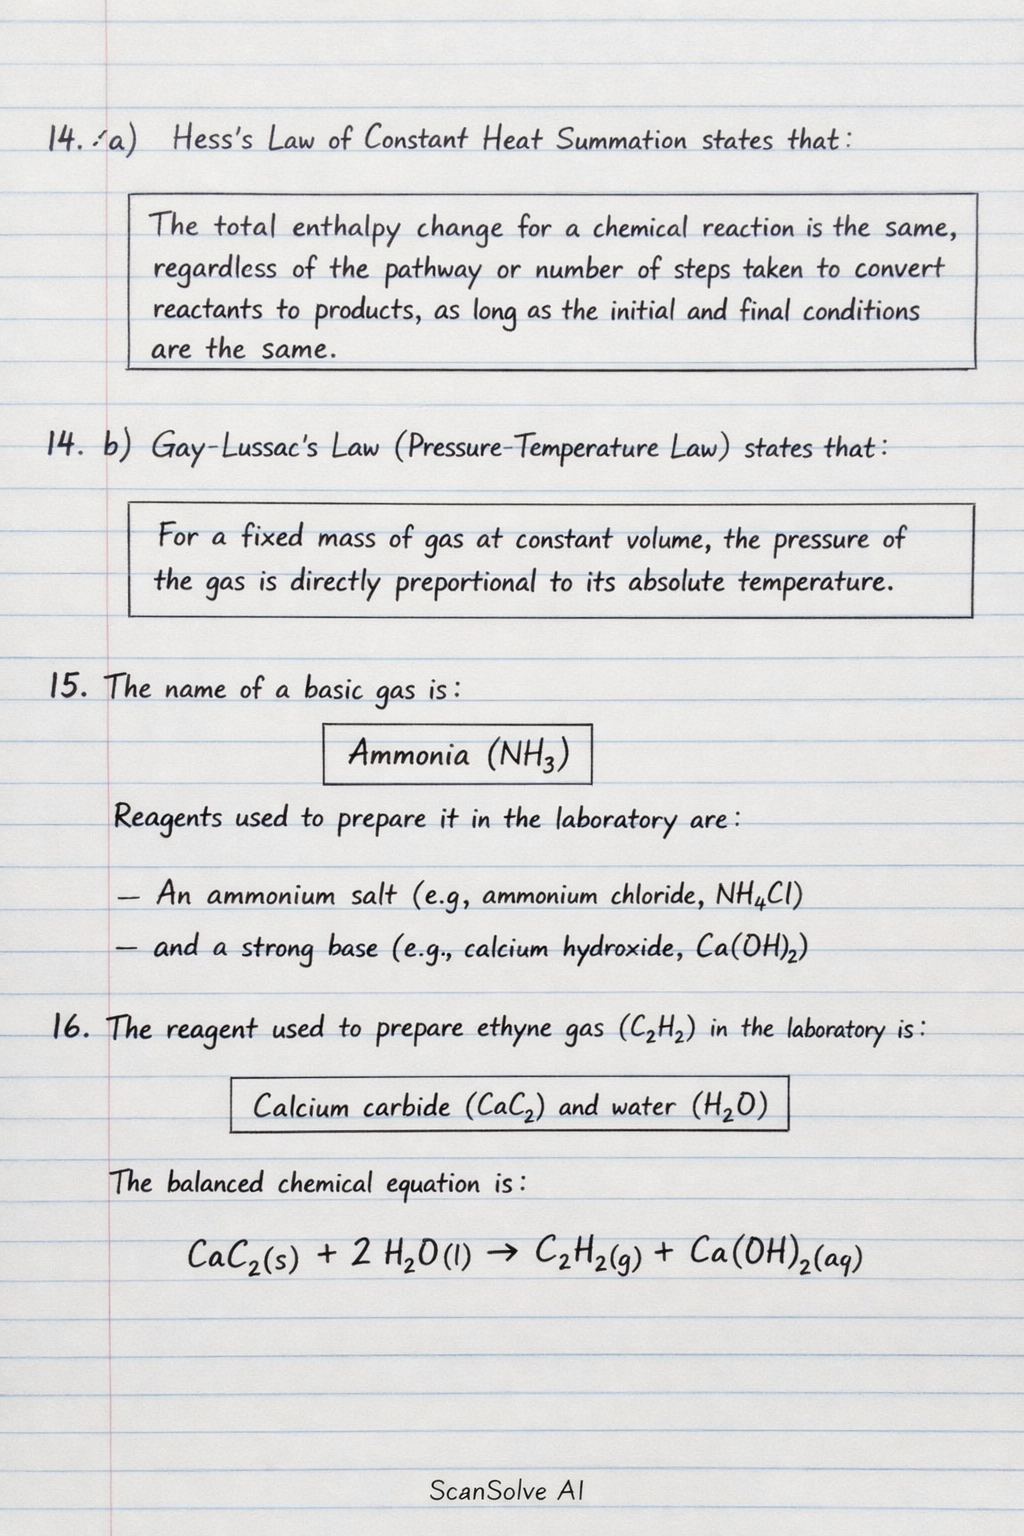 14. a) Hess's Law of Constant Heat Summation states that:
The total enthalpy change for a chemical reaction is the same,
regardless of the pathway or number of steps taken to convert
reactants to products, as long as the initial and final conditions
are the same.
14. b) Gay-Lussac's Law (Pressure-Temperature Law) states that:
For a fixed mass of gas at constant volume, the pressure of
the gas is directly preportional to its absolute temperature.
15. The name of a basic gas is:
Ammonia (NH₃)
Reagents used to prepare it in the laboratory are:
— An ammonium salt (e.g, ammonium chloride, NH₄Cl)
— and a strong base (e.g., calcium hydroxide, Ca(OH)₂)
16. The reagent used to prepare ethyne gas (C₂H₂) in the laboratory is:
Calcium carbide (CaC₂) and water (H₂O)
The balanced chemical equation is:
CaC₂(s) + 2 H₂O(l) → C₂H₂(g) + Ca(OH)₂(aq)
ScanSolve AI